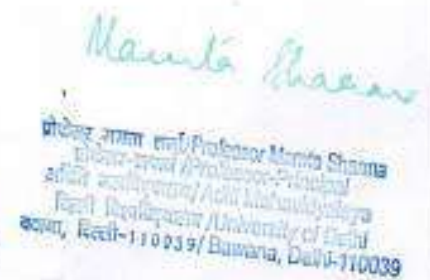 Mamta Sharma
प्रोफेसर ममता शर्मा/Professor Mamta Sharma
/Professor-Principal
अदिति महाविद्यालय/Aditi Mahavidyalaya
दिल्ली विश्वविद्यालय/University of Delhi
बवाना, दिल्ली-110039/Bawana, Delhi-110039